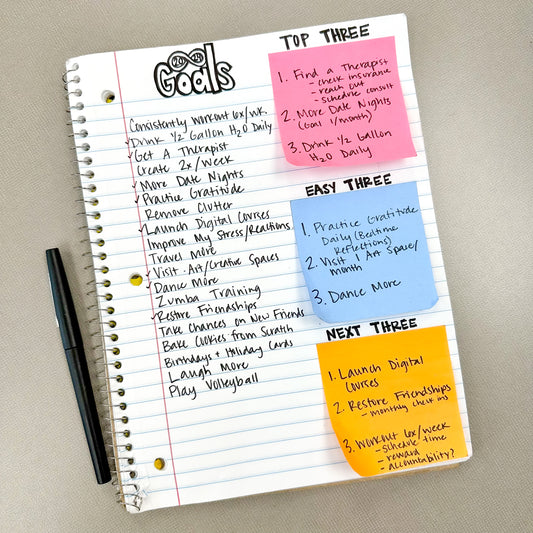 Goals
Consistently workout 6x/wk.
✓ Drink 1/2 Gallon H2O Daily
✓ Get A Therapist
Create 2x/week
✓ More Date Nights
✓ Practice Gratitude
Remove Clutter
✓ Launch Digital Courses
Improve My Stress/Reactions
Travel More
✓ Visit Art/Creative Spaces
✓ Dance More
Zumba Training
✓ Restore Friendships
Take Chances on New Friends
Bake Cookies from Scratch
Birthdays + Holiday Cards
Laugh More
Play Volleyball
TOP THREE
1. Find a Therapist
- check insurance
- reach out
- schedule consult
2. More Date Nights
(Goal 1/month)
3. Drink 1/2 Gallon
H2O Daily
EASY THREE
1. Practice Gratitude
Daily (Bedtime
Reflections)
2. Visit 1 Art Space/
month
3. Dance More
NEXT THREE
1. Launch Digital
Courses
2. Restore Friendships
- monthly check ins
3. Workout 6x/week
- schedule time
- reward
- accountability?